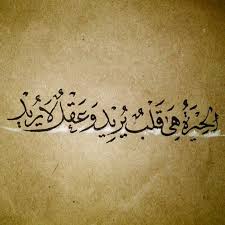 الحِيرَةُ هِيَ قَلْبٌ يُرِيد وَعَقْلٌ لَا يُرِيد